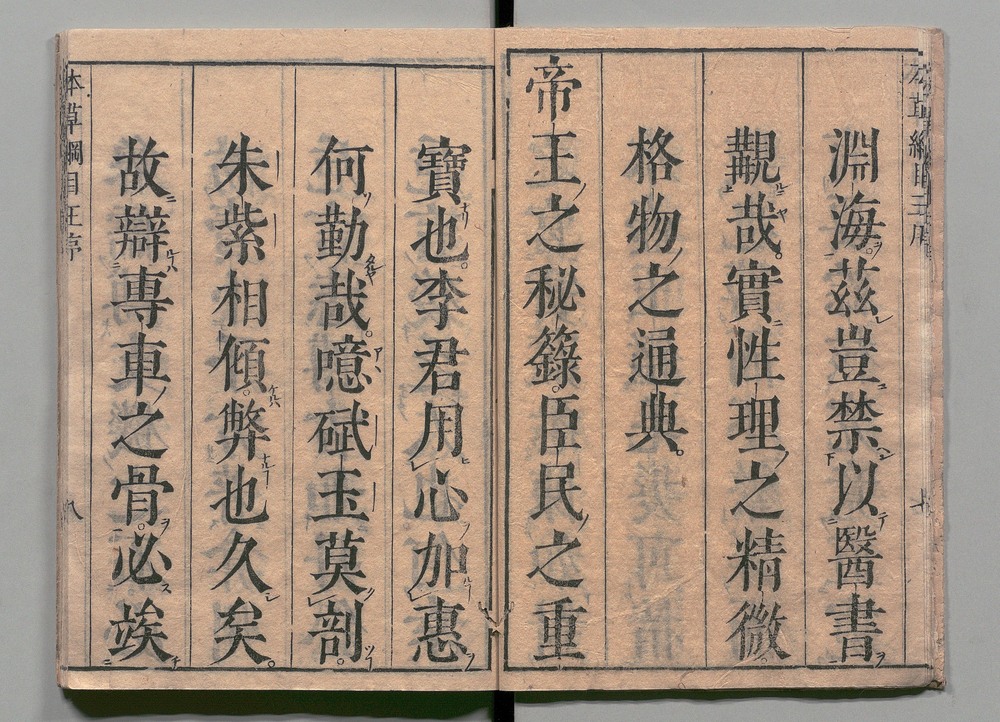 淵海茲豈禁以醫書
覯哉實性理之精微
格物之通典
帝王之秘籙臣民之重
寶也李君用心加惠
何勤哉噫碔玉莫剖
朱紫相傾弊也久矣
故辯專車之骨必竢
本草綱目王序
八